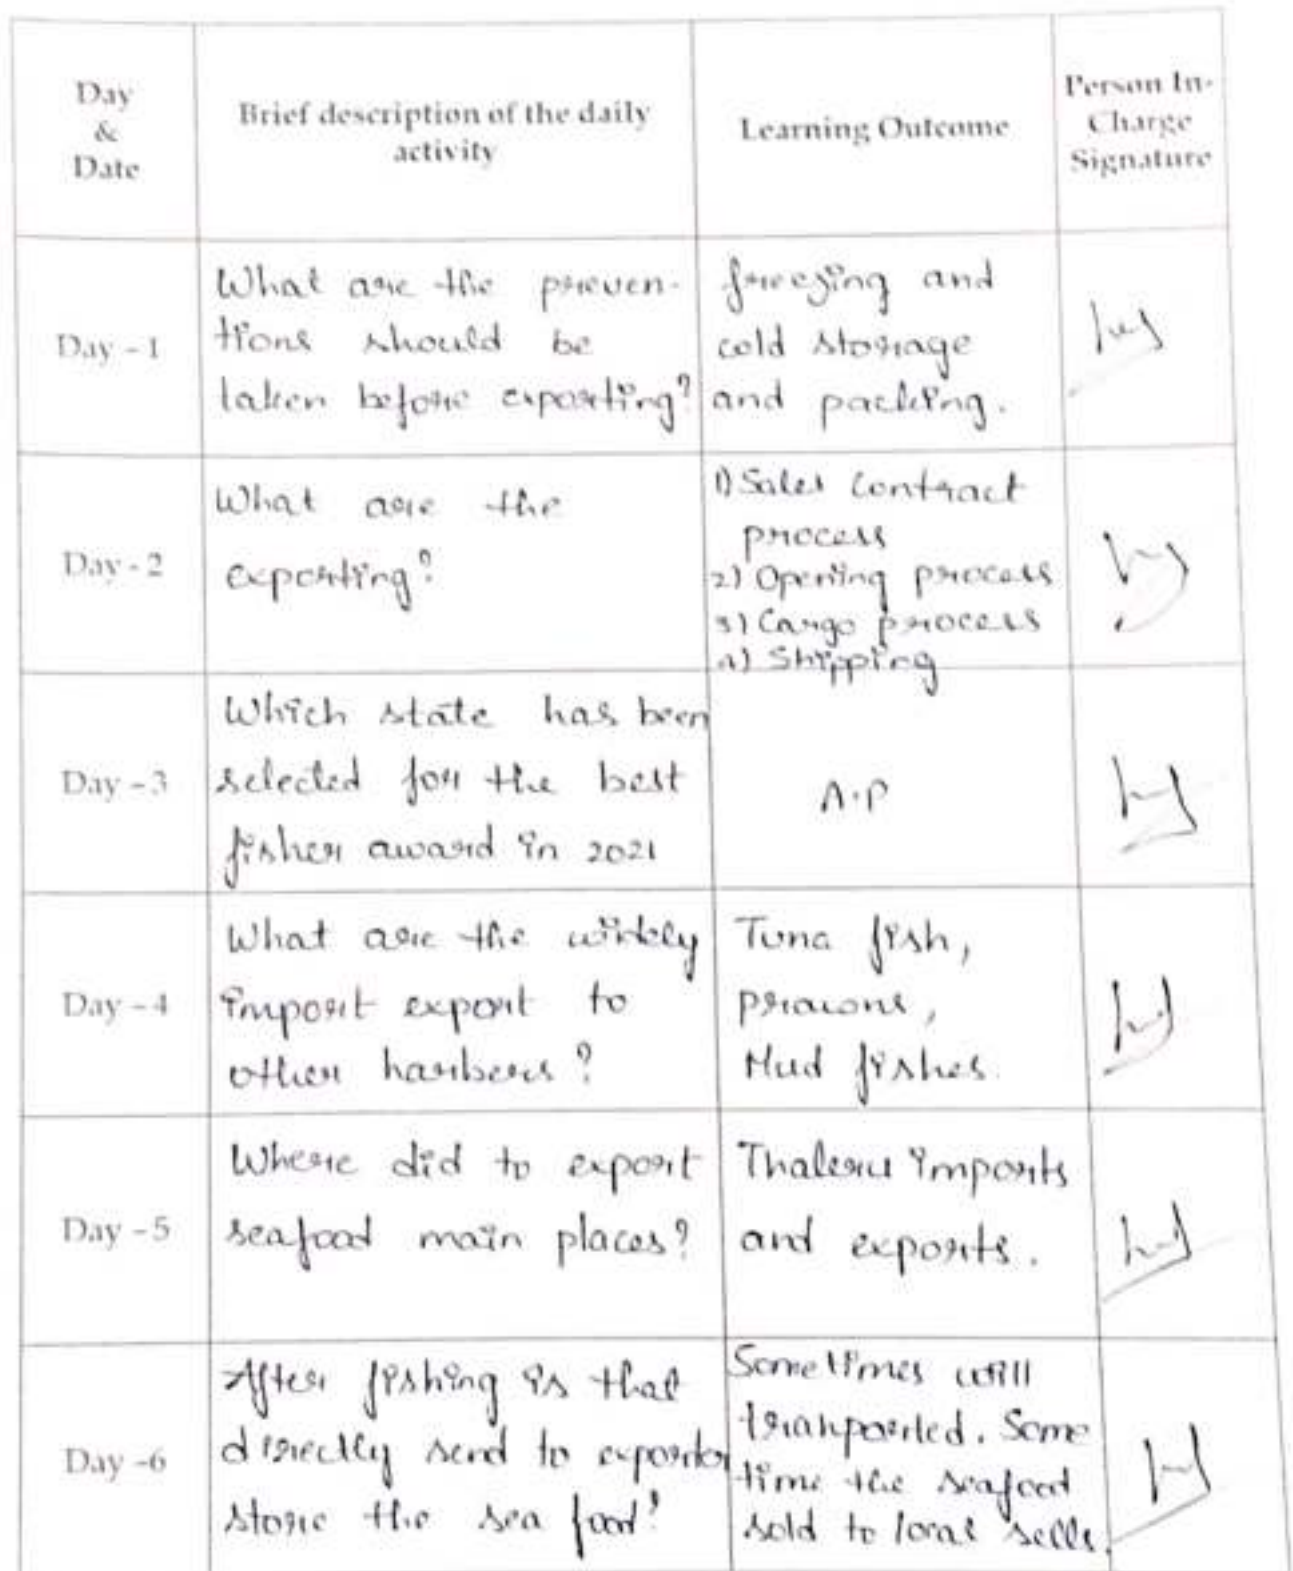 Day
&
Date
Brief description of the daily
activity
Learning Outcome
Person In-
Charge
Signature
Day - 1
What are the preven-
tions should be
taken before exporting?
freezing and
cold storage
and packing.
Day - 2
What are the
exporting?
1) Sales Contract
process
2) Opening process
3) Cargo process
4) Shipping
Day - 3
Which state has been
selected for the best
fisher award in 2021
A.P
Day - 4
What are the
import export to
other harbers?
Tuna fish,
prawns,
Mud fishes.
Day - 5
Where did to export
seafood main places?
Thaleru imports
and exports.
Day -6
After fishing is that
directly send to
store the sea food?
Sometimes will
tranported. Some
time the seafood
sold to local sells.